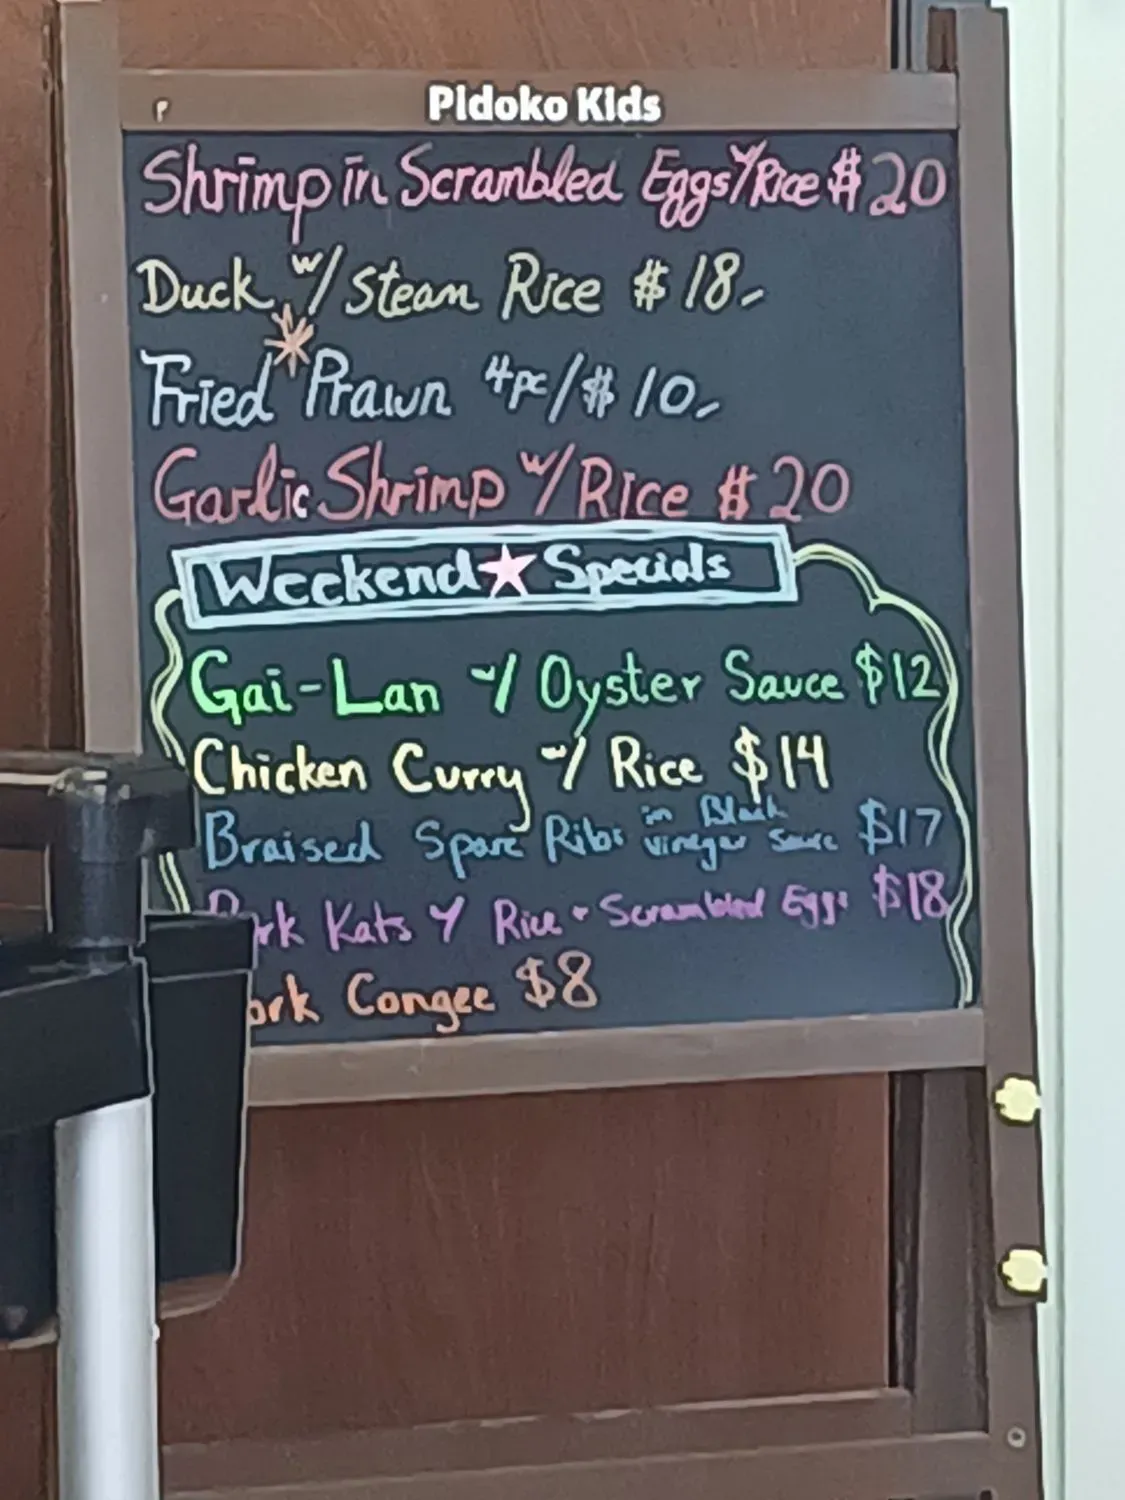 Pidoko Kids
Shrimp in Scrambled Eggs w/Rice $20
Duck w/ Steam Rice $18-
Fried Prawn 4pc/$10-
Garlic Shrimp w/Rice $20
Weekend Specials
Gai-Lan w/ Oyster Sauce $12
Chicken Curry w/ Rice $14
Braised Spare Ribs in Black vinegar Sauce $17
Pork Kats w/ Rice + Scrambled Eggs $18
Pork Congee $8